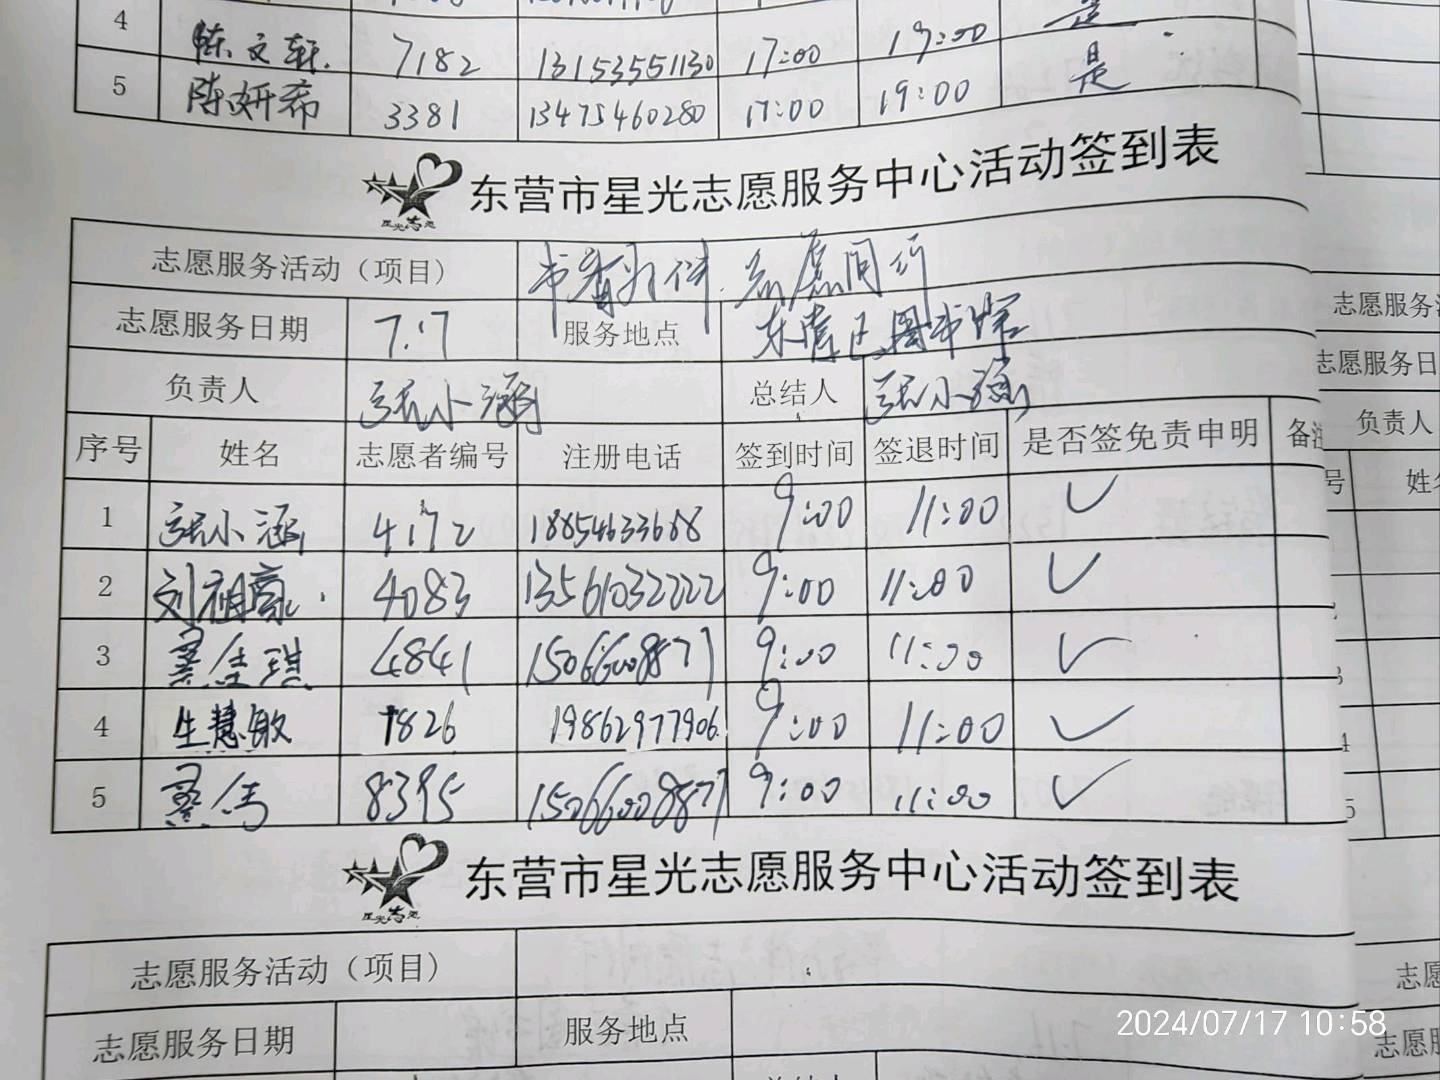 4 陈文轩 7182 13153551130 17:00 19:00 是
5 陈妍希 3381 13475460280 17:00 19:00 是
东营市星光志愿服务中心活动签到表
星光志愿
志愿服务活动（项目） 书香为伴 志愿同行
志愿服务日期 7.7 服务地点 东营区图书馆
负责人 张小涵 总结人 张小涵
序号 姓名 志愿者编号 注册电话 签到时间 签退时间 是否签免责申明 备注
1 张小涵 4172 18854633688 9:00 11:00 ✓
2 刘祖豪 4083 13561032222 9:00 11:00 ✓
3 綦佳琪 4841 15066008877 9:00 11:00 ✓
4 生慧敏 1826 19862977906 9:00 11:00 ✓
5 綦 8395 15066008877 9:00 11:00 ✓
东营市星光志愿服务中心活动签到表
星光志愿
志愿服务活动（项目）
志愿服务日期 服务地点
总结人
志愿服务
志愿服务日
负责人
号 姓名
5
志愿
志愿服
2024/07/17 10:58